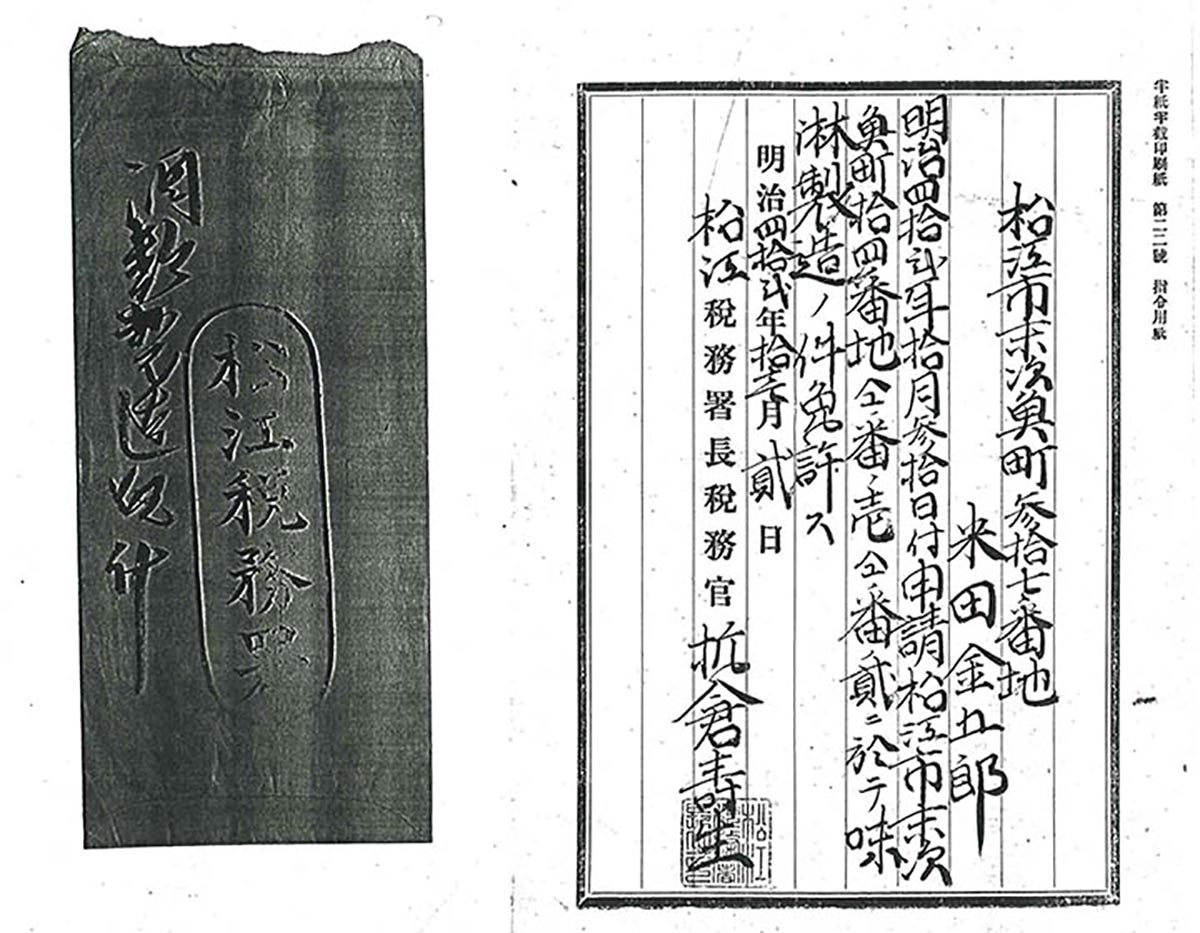 半紙半截印刷紙 第二二號 指令用紙
松江市末次魚町参拾七番地
米田金五郎
明治四拾弐年拾月参拾日付申請松江市末次
魚町拾四番地仝番ノ壱仝番ノ貳ニ於テ味
淋製造ノ件免許ス
明治四拾弐年拾壱月貳日
松江税務署長税務官 杭倉寿生
松江税務署
酒類製造免許